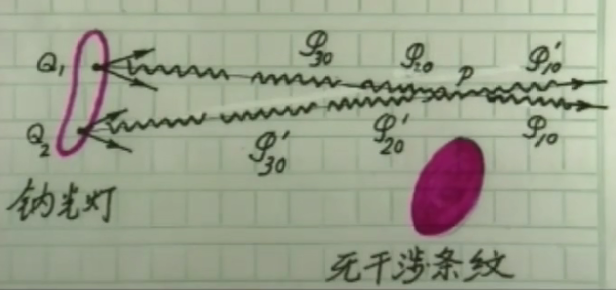 Q₁ φ₃₀ φ₂₀ P φ₁₀′
Q₂ φ₃₀′ φ₂₀′ φ₁₀
钠光灯
无干涉条纹